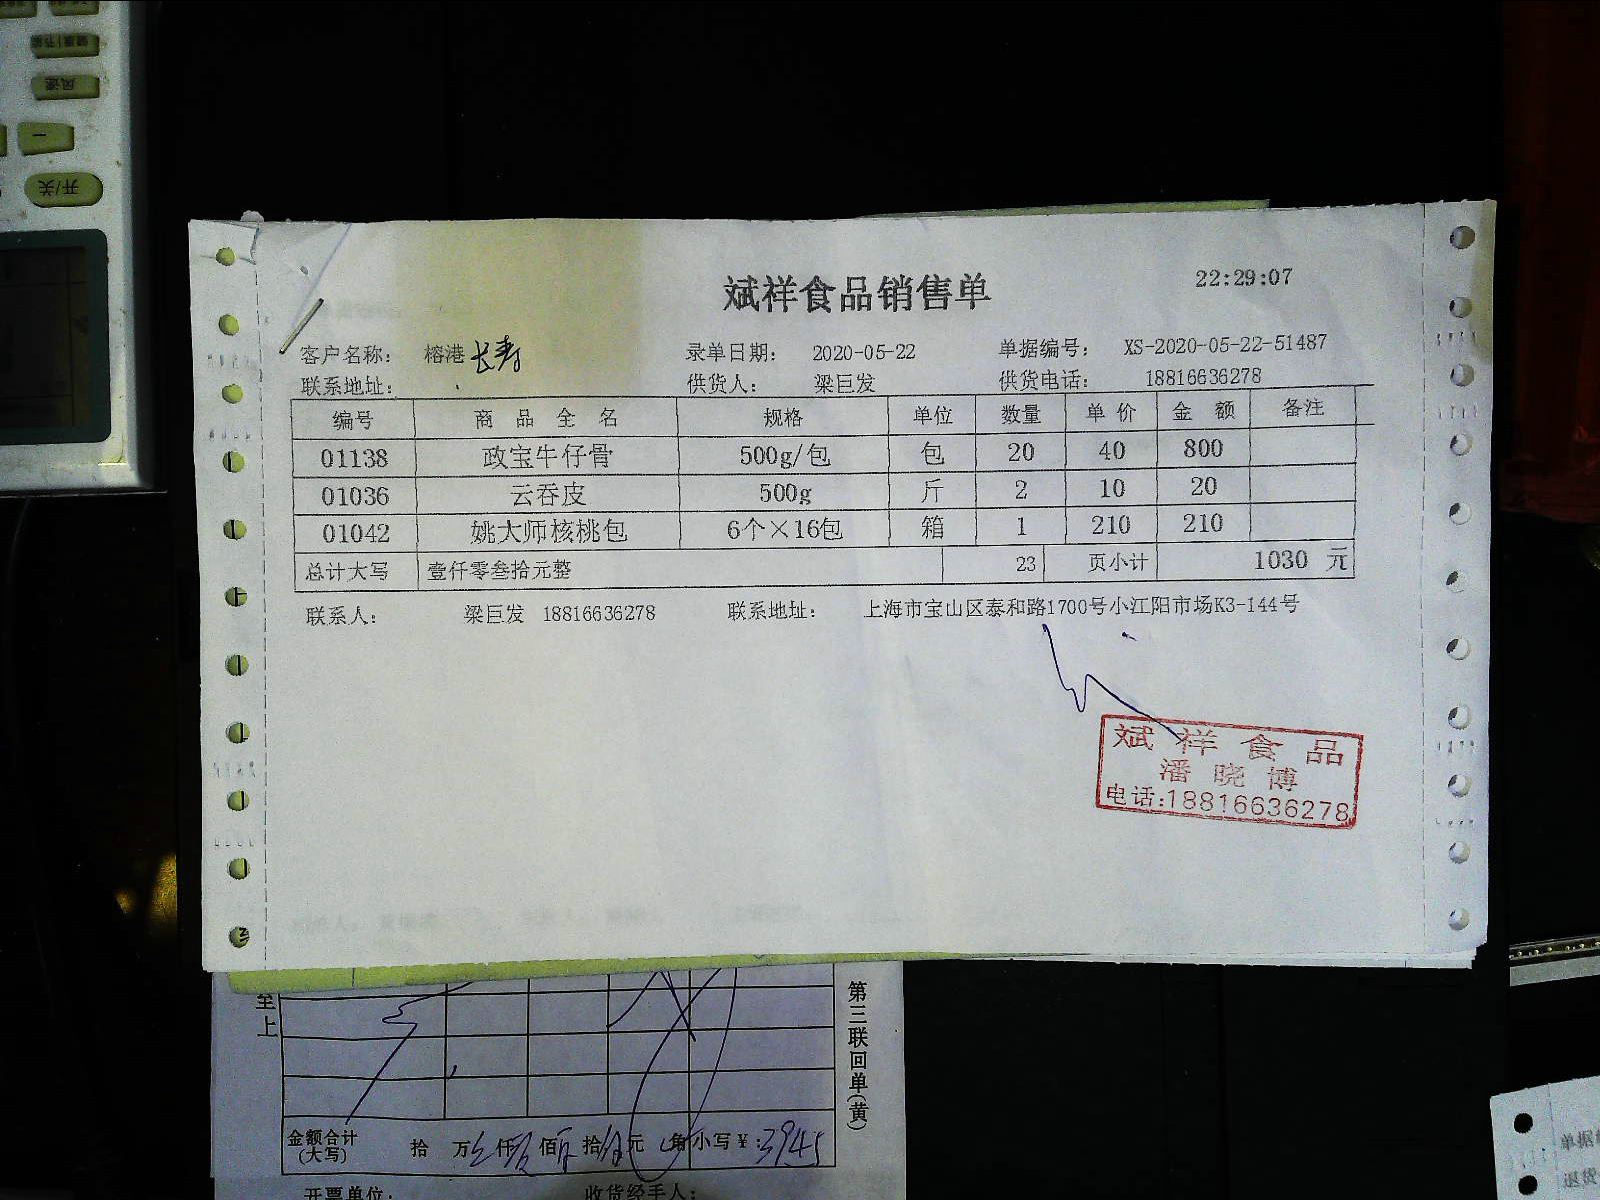 健康|节能
风速
一
开/关
斌祥食品销售单
22:29:07
客户名称: 榕港 长寿 录单日期: 2020-05-22 单据编号: XS-2020-05-22-51487
联系地址: 供货人: 梁巨发 供货电话: 18816636278
编号 商品全名 规格 单位 数量 单价 金额 备注
01138 政宝牛仔骨 500g/包 包 20 40 800
01036 云吞皮 500g 斤 2 10 20
01042 姚大师核桃包 6个×16包 箱 1 210 210
总计大写 壹仟零叁拾元整 23 页小计 1030 元
联系人: 梁巨发 18816636278 联系地址: 上海市宝山区泰和路1700号小江阳市场K3-144号
斌祥食品
潘晓博
电话:18816636278
至上
第三联回单(黄)
金额合计(大写) 拾 万 仟 佰 拾 元 角 小写¥: 3945
开票单位: 收货经手人:
单据
退货